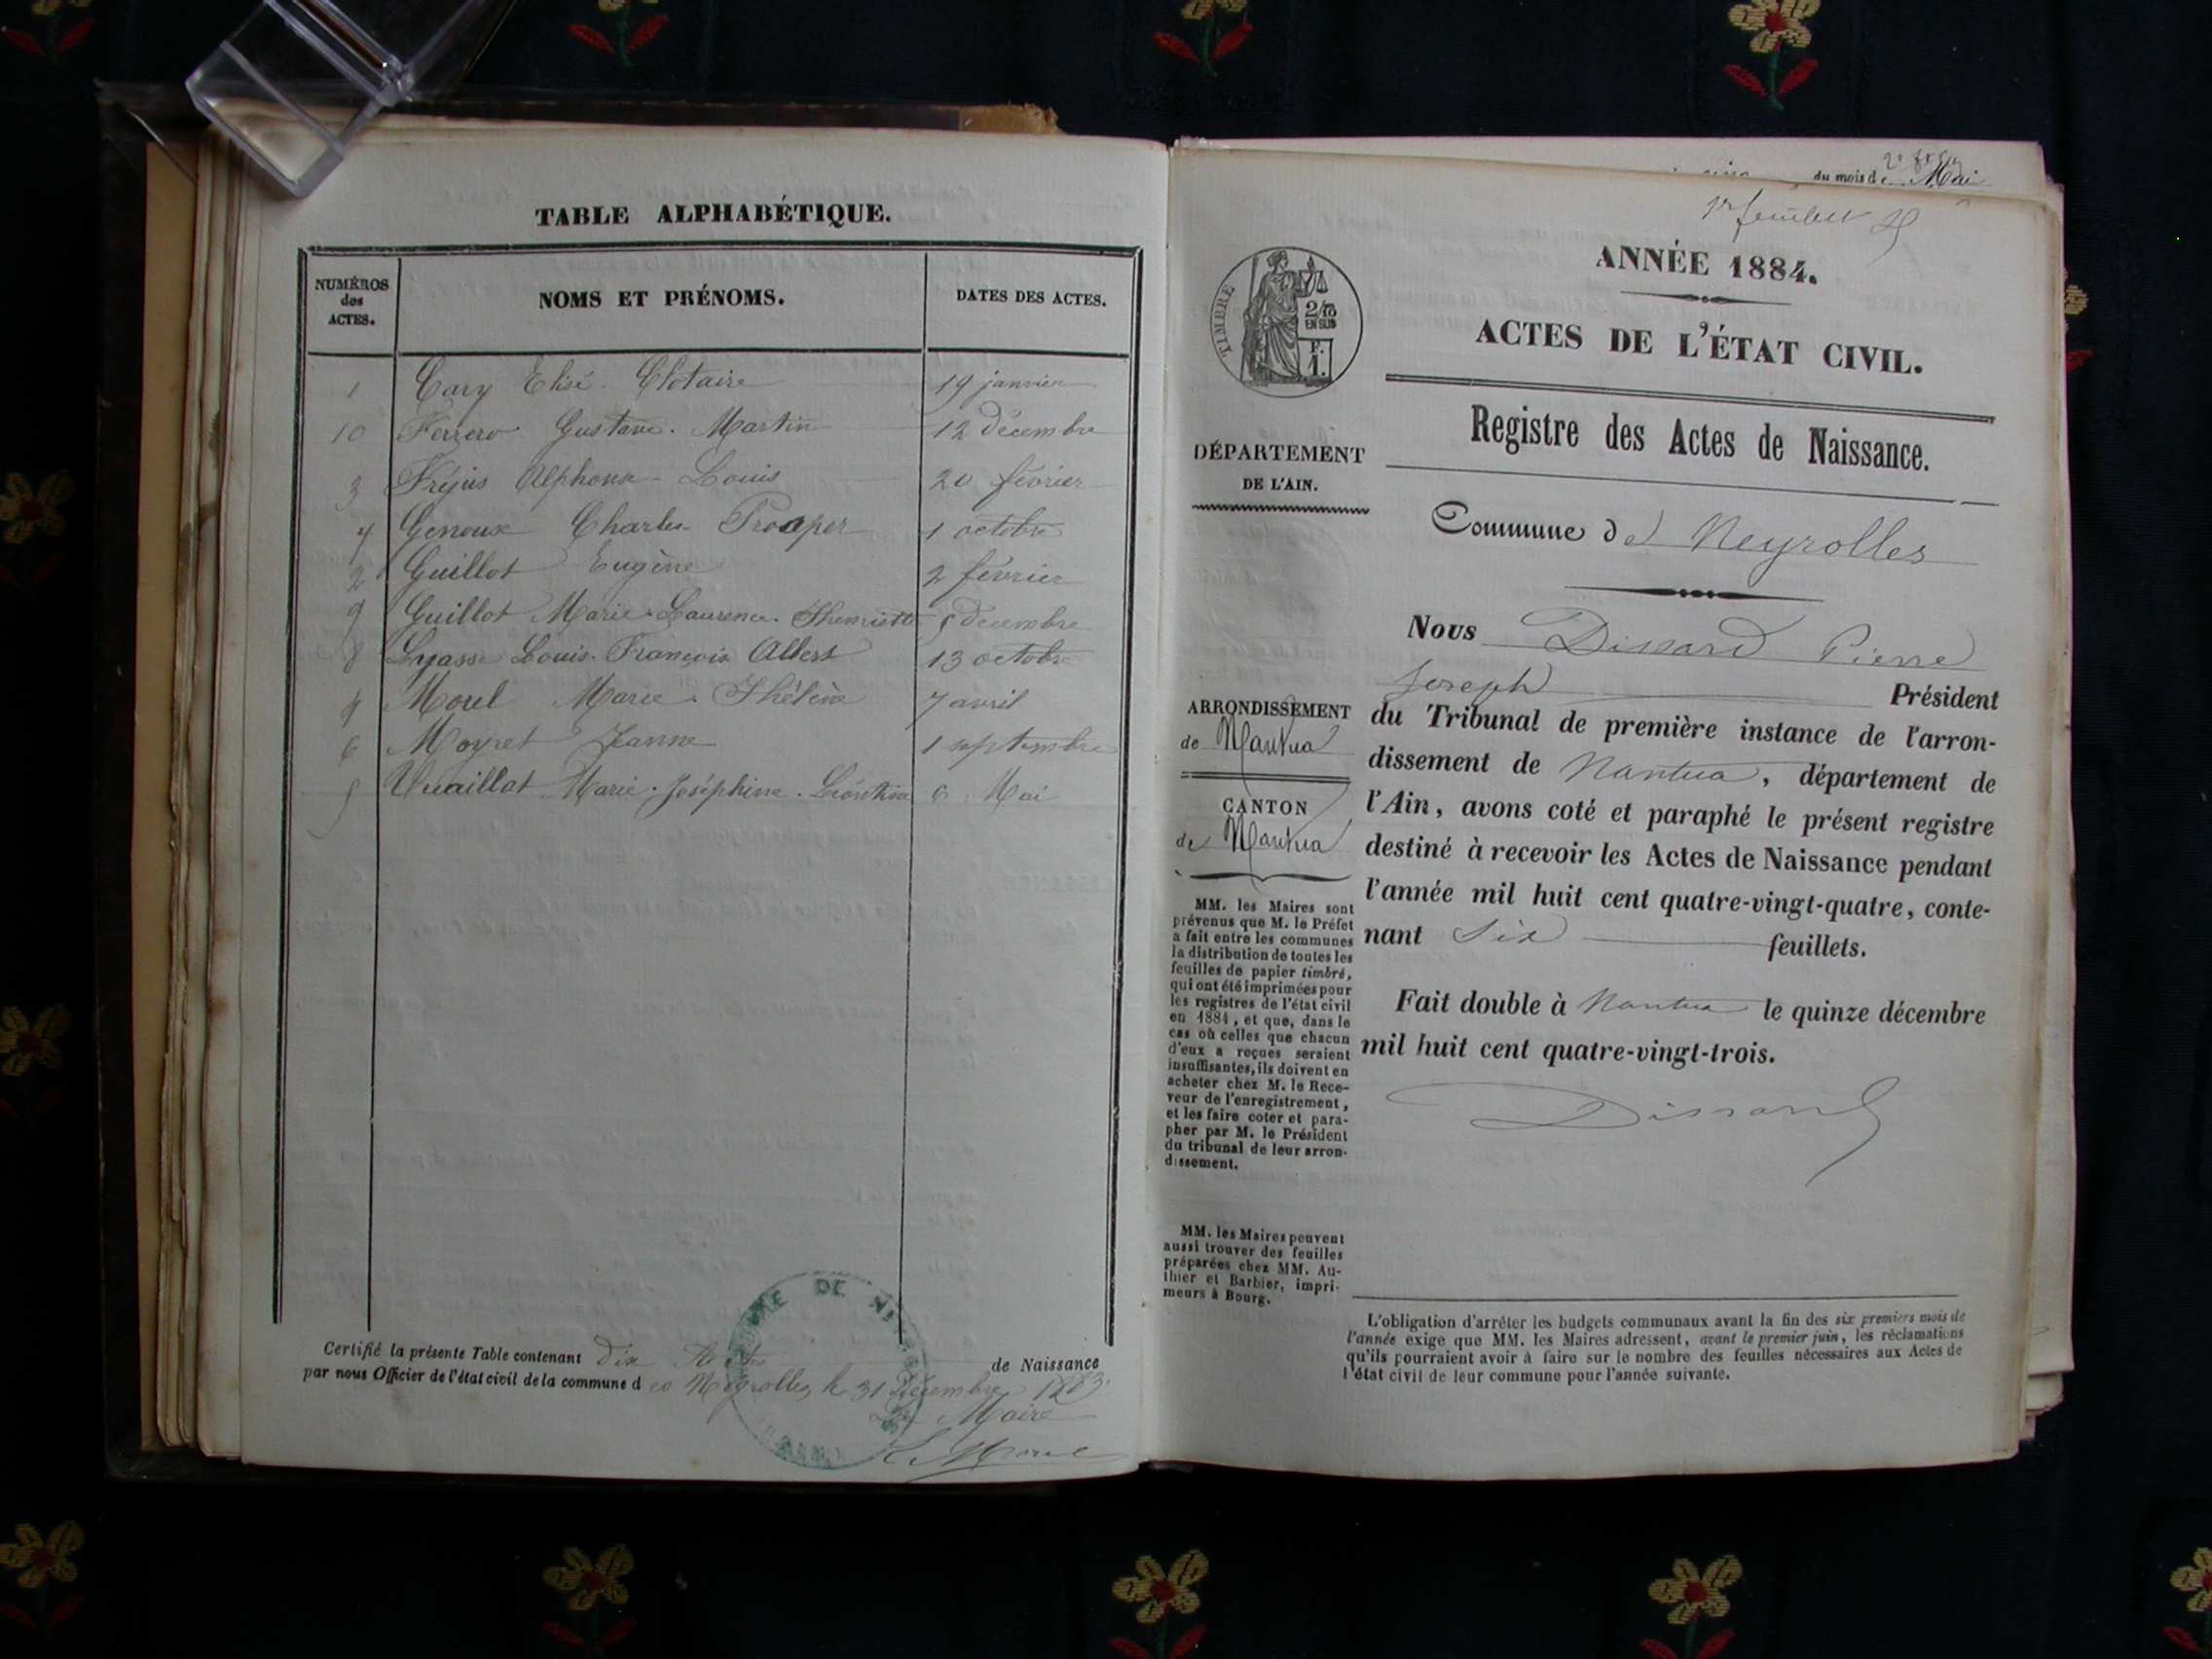 TABLE ALPHABÉTIQUE.
NUMÉROS
des
ACTES.
NOMS ET PRÉNOMS.
DATES DES ACTES.
1 Cary Elisé Clotaire 19 janvier
10 Ferrero Gustave Martin 12 décembre
3 Fréjus Alphonse Louis 20 février
Genoux Charles Prosper 1 octobre
2 Guillot Eugène 2 février
9 Guillot Marie Laurence décembre
8 Louis François Albert 13 octobre
4 Morel Marie 7 avril
6 Moyret Jeanne 1 septembre
5 Vuaillat Marie Joséphine Léontine 6 Mai
Certifié la présente Table contenant dix Actes de Naissance
par nous Officier de l'état civil de la commune d es Neyrolles, le 31 Décembre 1883.
Le Maire
du mois de Mai
1er feuillet
ANNÉE 1884.
ACTES DE L'ÉTAT CIVIL.
TIMBRE
2/10
EN SUS
F.
1.
Registre des Actes de Naissance.
DÉPARTEMENT
DE L'AIN.
Commune de Neyrolles
Nous Dissard Pierre
Joseph Président
ARRONDISSEMENT
de Nantua
du Tribunal de première instance de l'arron-
dissement de Nantua, département de
l'Ain, avons coté et paraphé le présent registre
destiné à recevoir les Actes de Naissance pendant
l'année mil huit cent quatre-vingt-quatre, conte-
nant six feuillets.
Fait double à Nantua le quinze décembre
mil huit cent quatre-vingt-trois.
Dissard
CANTON
de Nantua
MM. les Maires sont
prévenus que M. le Préfet
a fait entre les communes
la distribution de toutes les
feuilles de papier timbré,
qui ont été imprimées pour
les registres de l'état civil
en 1884, et que, dans le
cas où celles que chacun
d'eux a reçues seraient
insuffisantes, ils doivent en
acheter chez M. le Rece-
veur de l'enregistrement,
et les faire coter et para-
pher par M. le Président
du tribunal de leur arron-
dissement.
MM. les Maires peuvent
aussi trouver des feuilles
préparées chez MM. Au-
thier et Barbier, impri-
meurs à Bourg.
L'obligation d'arrêter les budgets communaux avant la fin des six premiers mois de
l'année exige que MM. les Maires adressent, avant le premier juin, les réclamations
qu'ils pourraient avoir à faire sur le nombre des feuilles nécessaires aux Actes de
l'état civil de leur commune pour l'année suivante.